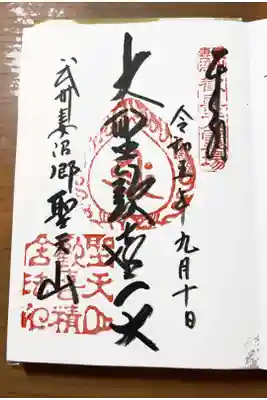 奉拝
令和五年九月十日
大聖歓喜天
武州妻沼郷 聖天山
聖天山
歡喜精
舍法印